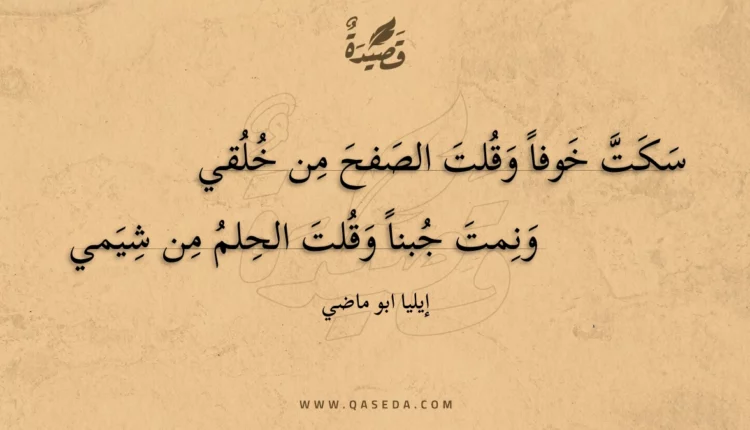 قَصِيْدَةٌ
سَكَتَّ خَوفاً وَقُلتَ الصَفحَ مِن خُلُقي
وَنِمتَ جُبناً وَقُلتَ الحِلمُ مِن شِيَمي
إيليا ابو ماضي
WWW.QASEDA.COM